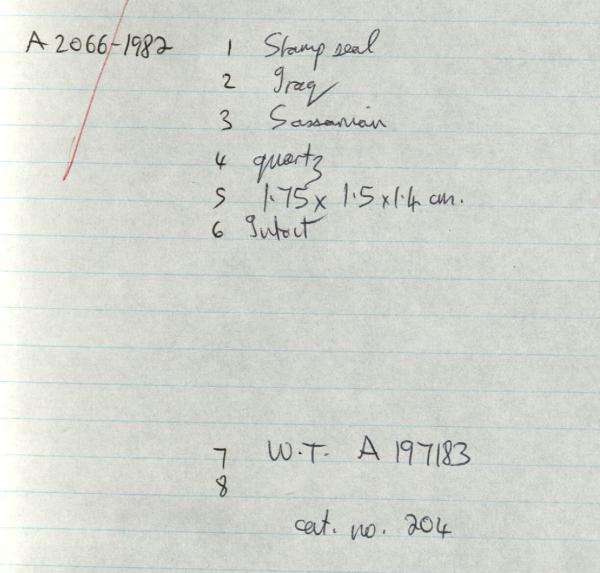 A 2066-1982 1 Stamp seal
2 Iraq
3 Sassanian
4 quartz
5 1.75 x 1.5 x 1.4 cm.
6 Intact
7 W.T. A 197183
8
cat. no. 204